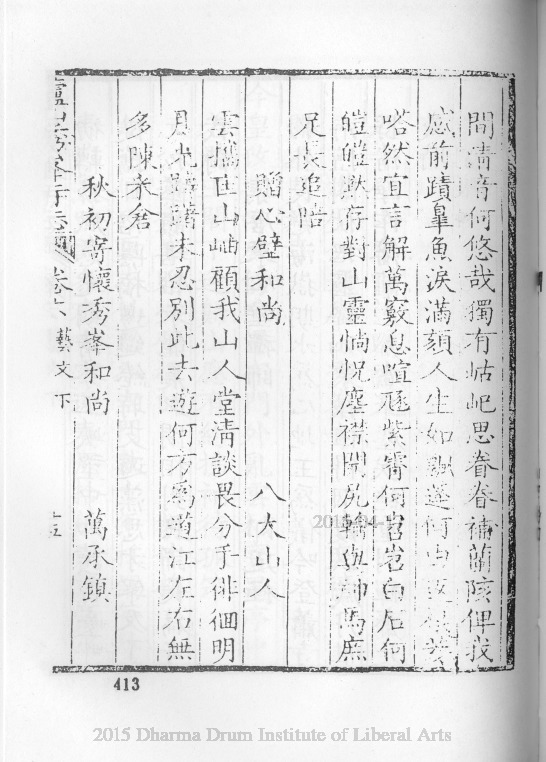 間清音何悠哉獨有岵屺思眷眷補蘭陔俾我
感前蹟皐魚淚滿顋人生如飄蓬何由
嗒然宜言解萬竅息喧豗紫霄何岧岧白石何
皚皚默存對山靈惝怳塵襟開尻輪與神馬庶
足長追陪
贈心壁和尚
八大山人
雲攜匡山岫顧我山人堂清談畏分手徘徊明
月光躊躇未忍別此去遊何方為道江左右無
多陳朱倉
秋初寄懷秀峯和尚
萬承鎮
廬山秀峯寺志
卷六
藝文下
413
2015 Dharma Drum Institute of Liberal Arts